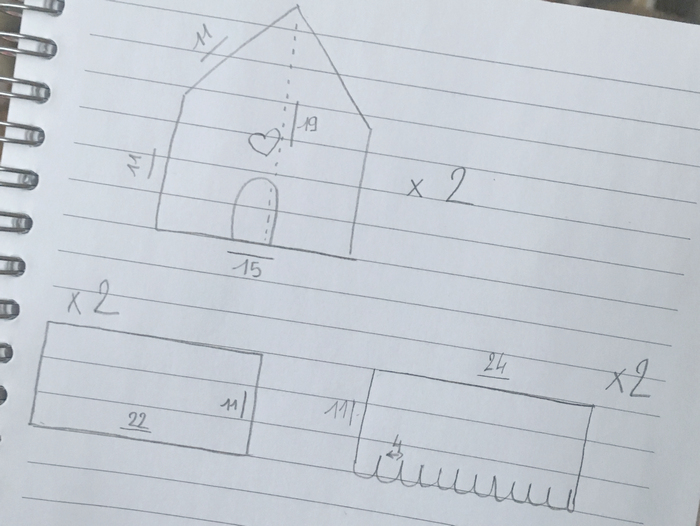 11
19
11
x 2
15
x 2
24
x2
11
22
11
4